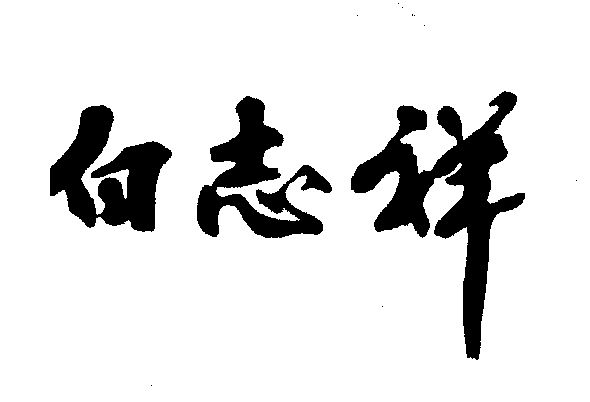 白志祥